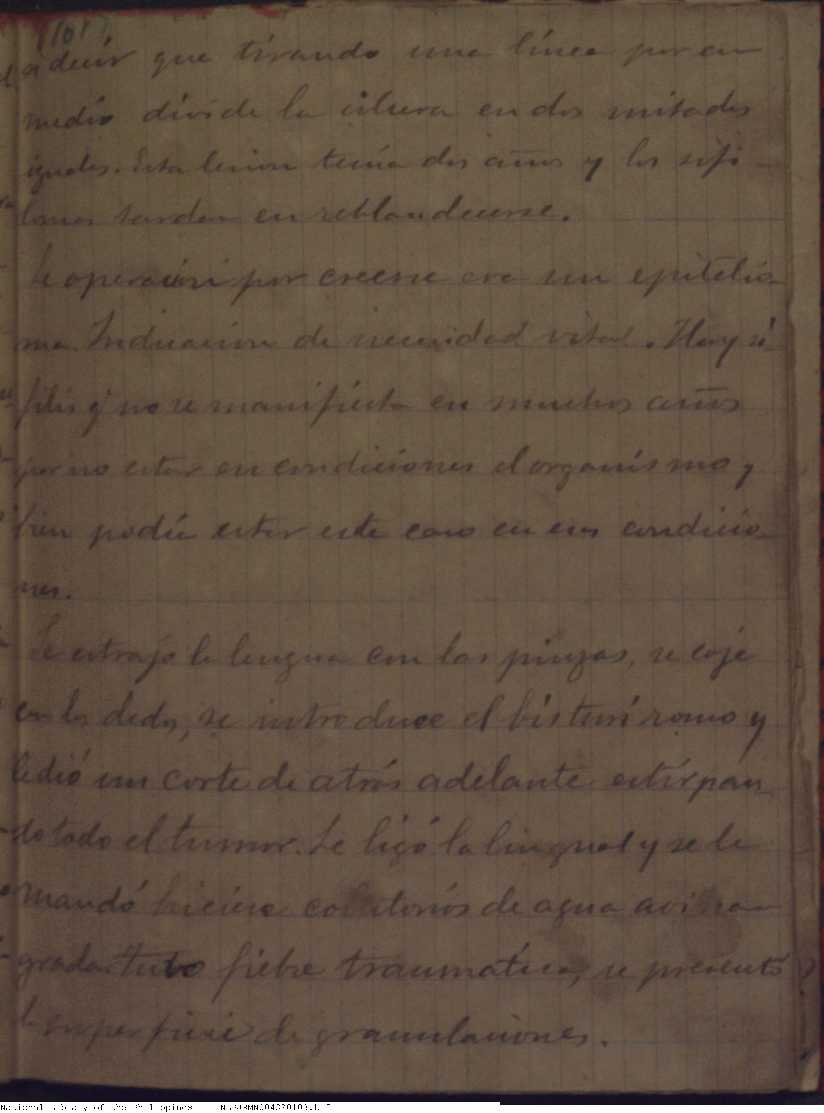 (101)
es decir que tirando una línea por en
medio divide la ulcera en dos mitades
iguales. Esta lesion tenía dos años y los sifi-
lomas tardan en reblandecerse.
Se operó por creerse era un epitelio-
ma. Indicacion de necesidad vital. Hay sí-
filis q' no se manifiesta en muchos años
por no estar en condiciones el organísmo y
bien podía estar este caso en esas condicio-
nes.
Se estrajo la lengua con las pinzas, se coje
con los dedos, se introduce el bísturí romo y
le dió un corte de atrás adelante estírpan-
do todo el tumor. Se ligó la lingual y se le
mandó hiciese colutorios de agua avina-
grada. Tuvo fiebre traumatíca, se presentó
superficie de granulaciones.
National Library of the Philippines